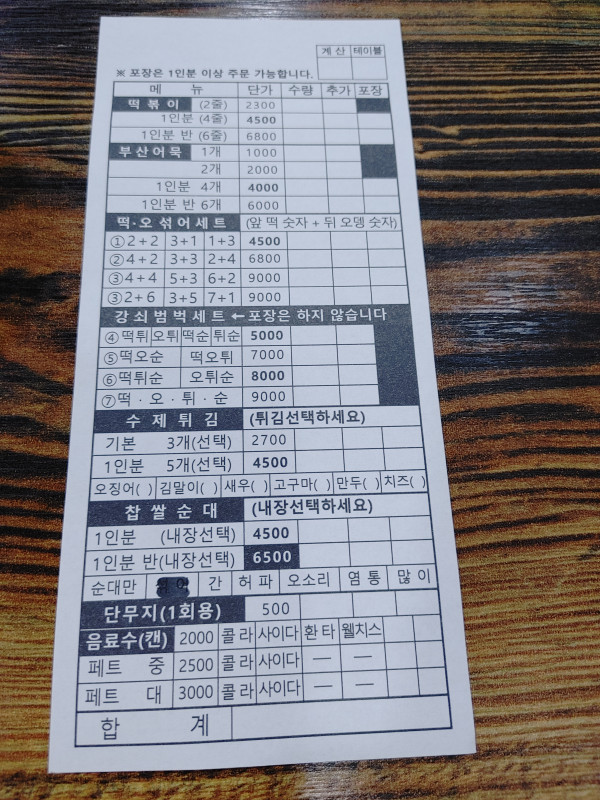 계산 테이블
※ 포장은 1인분 이상 주문 가능합니다.
메 뉴 단가 수량 추가 포장
떡볶이 (2줄) 2300
1인분 (4줄) 4500
1인분 반 (6줄) 6800
부산어묵 1개 1000
2개 2000
1인분 4개 4000
1인분 반 6개 6000
떡·오 섞어세트 (앞 떡 숫자 + 뒤 오뎅 숫자)
①2+2 3+1 1+3 4500
②4+2 3+3 2+4 6800
③4+4 5+3 6+2 9000
③2+6 3+5 7+1 9000
강쇠범벅세트 ←포장은 하지 않습니다
④떡튀 오튀 떡순 튀순 5000
⑤떡오순 떡오튀 7000
⑥떡튀순 오튀순 8000
⑦떡·오·튀·순 9000
수제튀김 (튀김선택하세요)
기본 3개(선택) 2700
1인분 5개(선택) 4500
오징어( ) 김말이( ) 새우( ) 고구마( ) 만두( ) 치즈( )
찹쌀순대 (내장선택하세요)
1인분 (내장선택) 4500
1인분 반(내장선택) 6500
순대만 간 허파 오소리 염통 많이
단무지(1회용) 500
음료수(캔) 2000 콜라 사이다 환타 웰치스
페트 중 2500 콜라 사이다 — —
페트 대 3000 콜라 사이다 — —
합 계